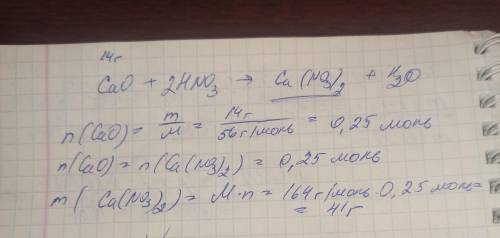 14 г
CaO + 2HNO₃ → Ca(NO₃)₂ + H₂O
n(CaO) = m/M = 14 г/56 г/моль = 0,25 моль
n(CaO) = n(Ca(NO₃)₂) = 0,25 моль
m(Ca(NO₃)₂) = M·n = 164 г/моль·0,25 моль=
= 41 г